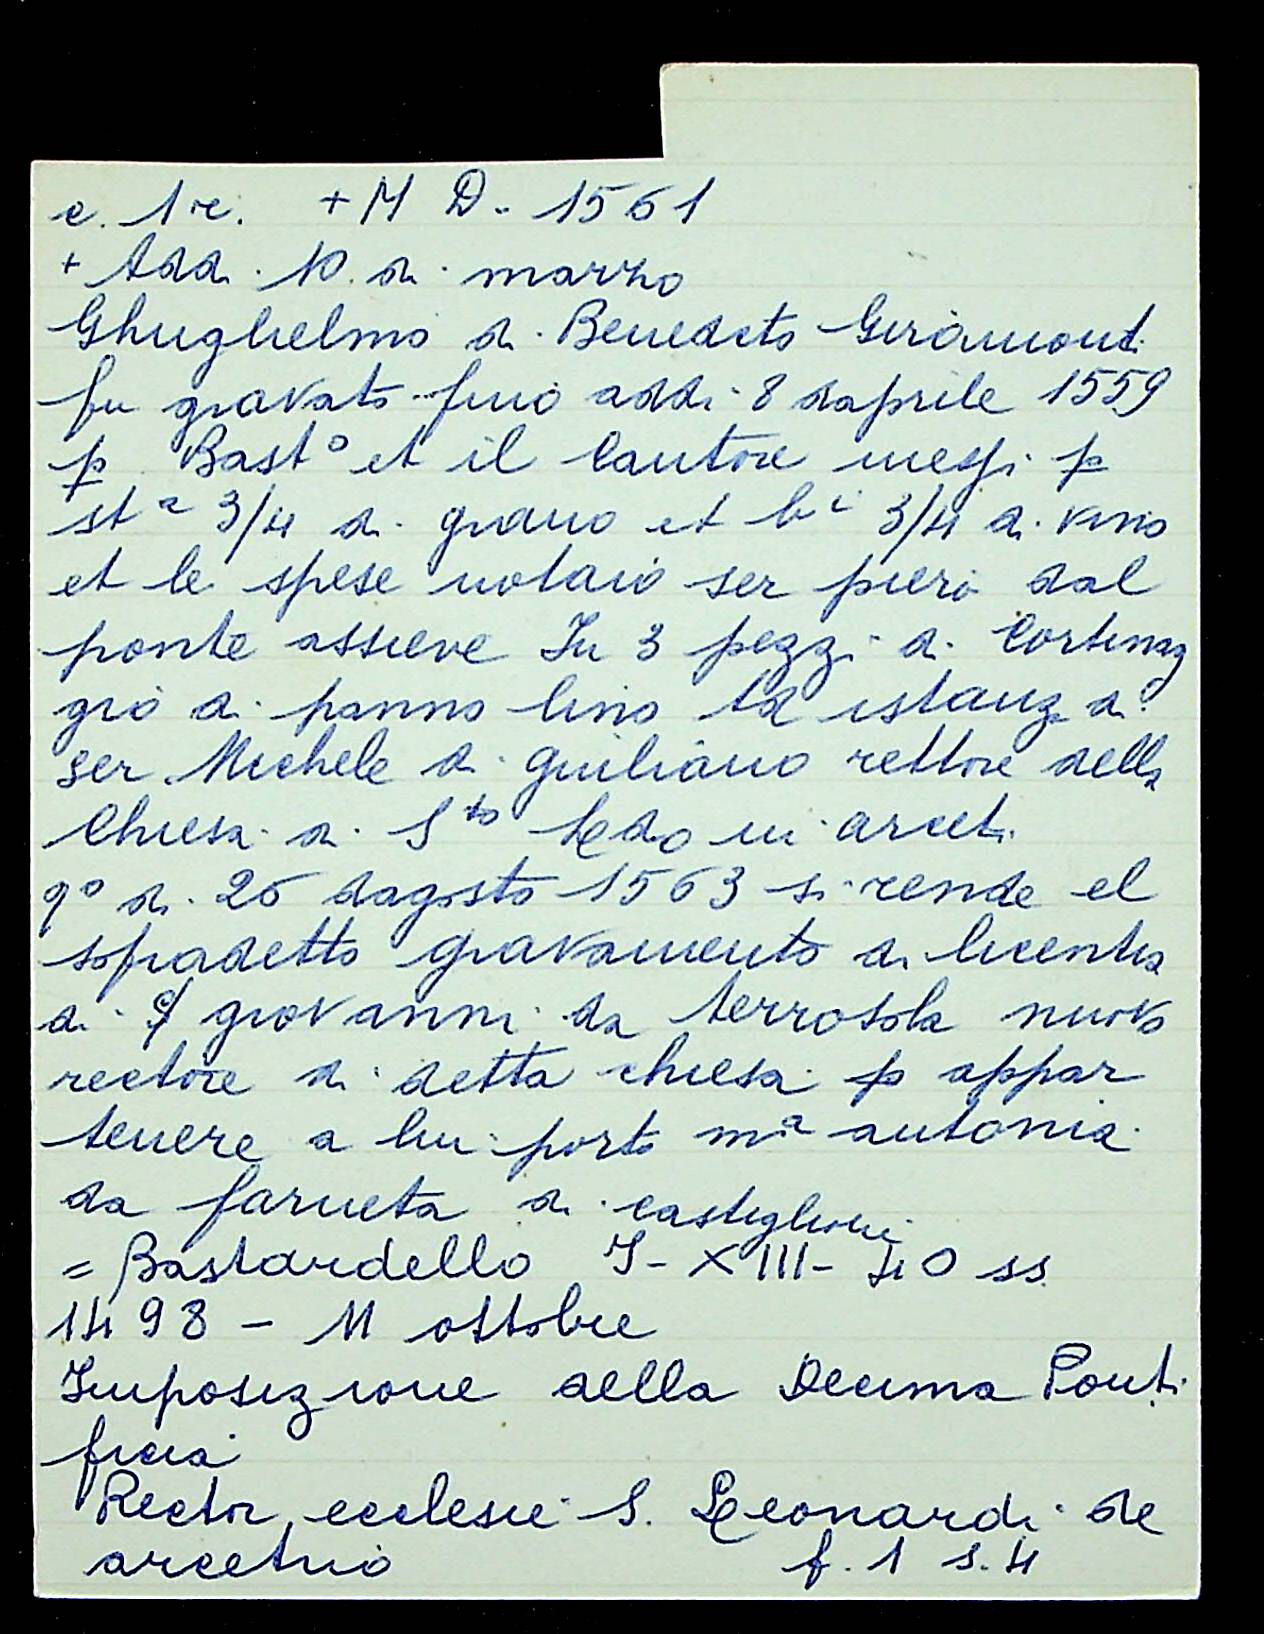 c. 1 r. + M D. 1561
+ Addi 10 di marzo
Ghuglielmo di Benedeto Giramonti
fu gravato fino addi 8 daprile 1559
p Bast° et il Cantore messi p
stª 3/4 di grano et bⁱ 3/4 di vino
et le spese notaio ser piero dal
ponte assieve In 3 pezzi di Cortinag
gio di panno lino Ad istanza di
ser Michele di giuliano rettore della
Chiesa di Sto Ledo in arceti
qº di 26 dagosto 1563 si rende el
sopradetto gravamento di licentia
di giovanni da terrosola nuovo
rectore di detta chiesa p appar
tenere a lui porto mª antonia
da farneta di castiglioni
= Bastardello I - XIII - 40 ss.
1498 - 11 ottobre
Imposizione della Decima Ponti
ficia
Rector ecclesie S. Leonardi de
arcetrio f. 1 s. 4